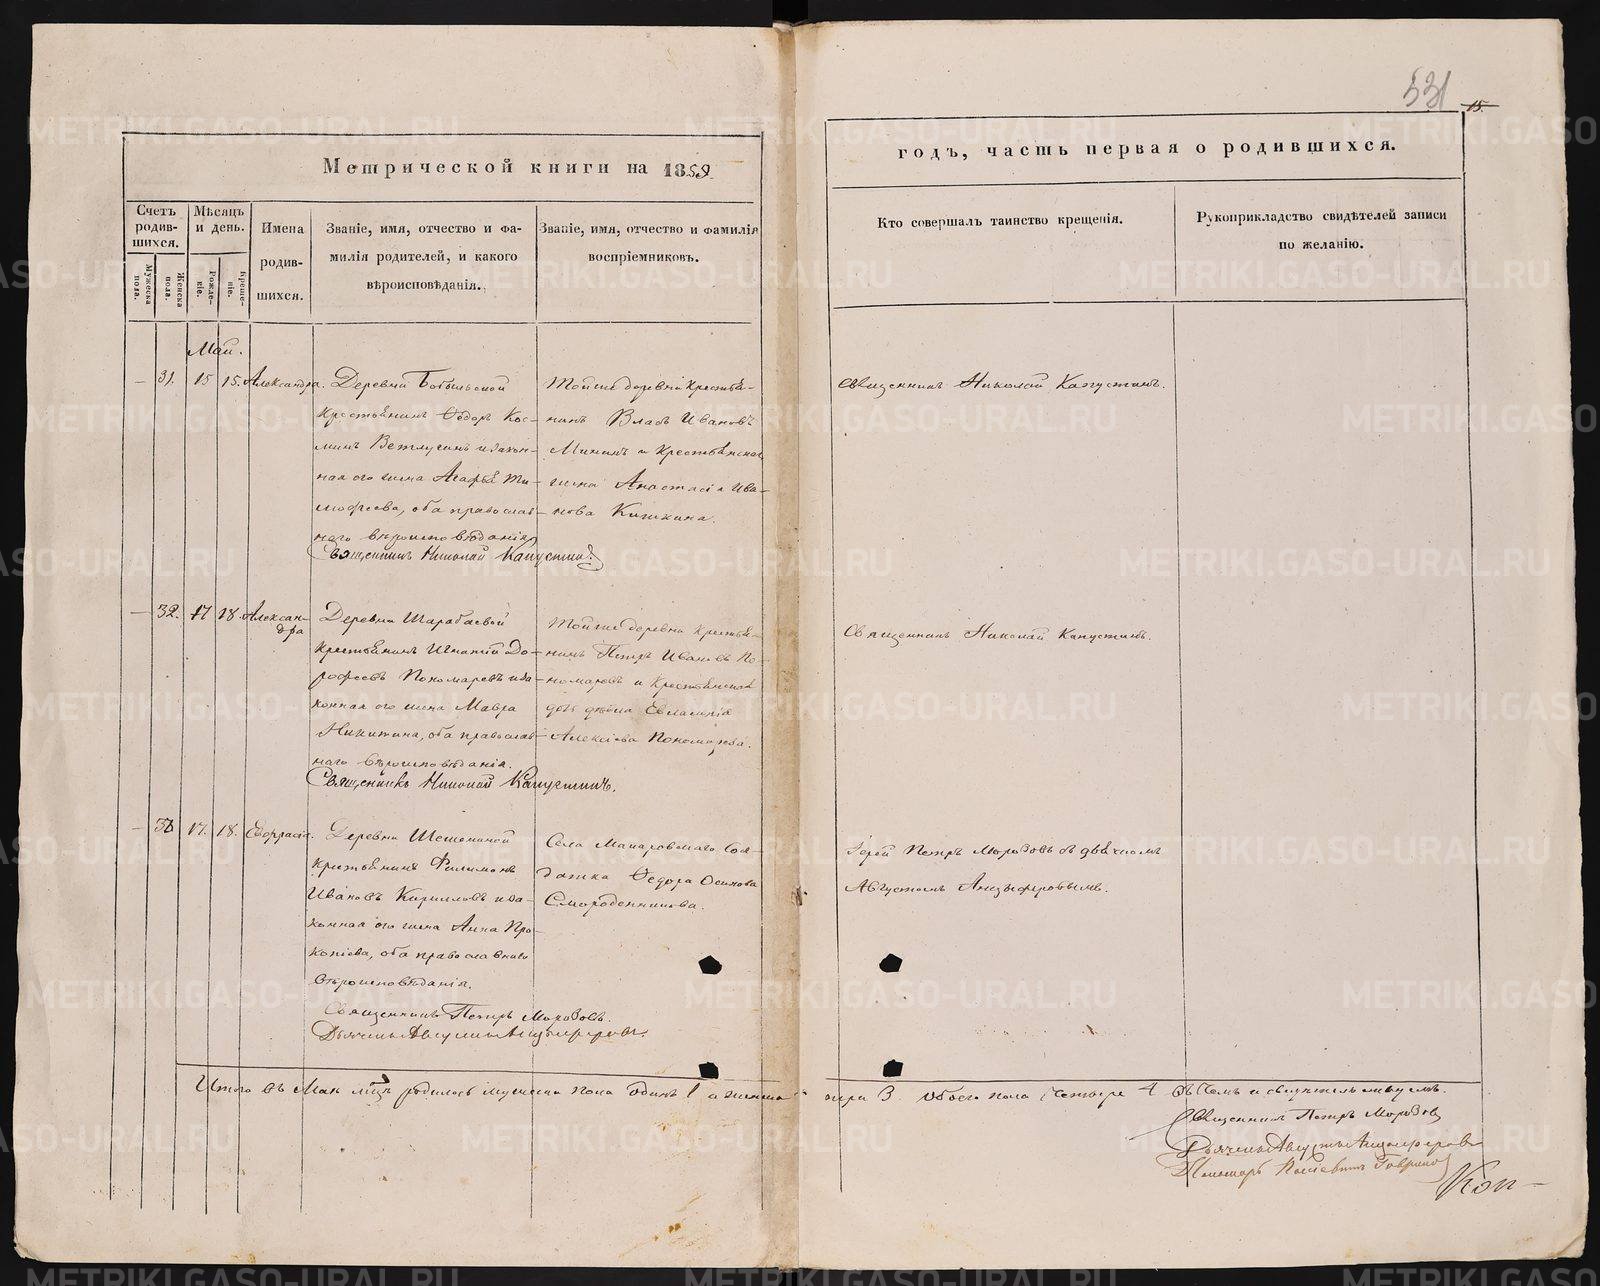 531
15.
Метрической книги на 1859.
годъ, часть первая о родившихся.
Счетъ родив-шихся.
Мужеска пола.
Женска пола.
Мѣсяцъ и день.
Рожде-ніе.
Креще-ніе.
Имена родив-шихся.
Званіе, имя, отчество и фа-
милія родителей, и какого
вѣроисповѣданія.
Званіе, имя, отчество и фамилія
воспріемниковъ.
Кто совершалъ таинство крещенія.
Рукоприкладство свидѣтелей записи
по желанію.
Май.
— 31. 15 15. Александра.
Деревни
Крестьянинъ Ѳедоръ Кос-
минъ Ветлугинъ и закон-
ная его жена Агафья Ти-
мофеева, оба православ-
наго вѣроисповѣданія
Священникъ Николай Капустинъ
Той же деревни крестья-
нинъ Власъ Ивановъ
Мининъ и крестьянская
жена Анастасія Ива-
нова Кишкина.
Священникъ Николай Капустинъ.
— 32. 17 18. Алексан-
дра
Деревни Шарабаевой
крестьянинъ Игнатій До-
рофеевъ Пономаревъ и за-
конная его жена Мавра
Никитина, оба православ-
наго вѣроисповѣданія.
Священникъ Николай Капустинъ.
Той же деревни крестья-
нинъ Петръ Ивановъ По-
номаревъ и крестьянская
дочь дѣвица Евлампія
Алексіева Пономарева.
Священникъ Николай Капустинъ.
— 33 17. 18. Евфрасія.
Деревни
крестьянинъ Филимонъ
Ивановъ Кирилловъ и за-
конная его жена Анна Про-
копіева, оба православнаго
вѣроисповѣданія.
Священникъ Петръ Морозовъ.
Дьячекъ Августъ Анцыферовъ.
Села Макаровскаго Сол-
датка Ѳедора Осипова
Смороденникова.
Іерей Петръ Морозовъ съ дьячкомъ
Августомъ Анцыферовымъ.
Итого въ Маѣ м-цѣ родилось мужеска пола одинъ 1 а женска три 3. обоего пола четыре 4. въ чемъ и свидѣтельствуемъ.
Священникъ Петръ Морозовъ
Дьячекъ Августъ Анцыферовъ
Пономарь Гавриловъ
METRIKI.GASO-URAL.RU